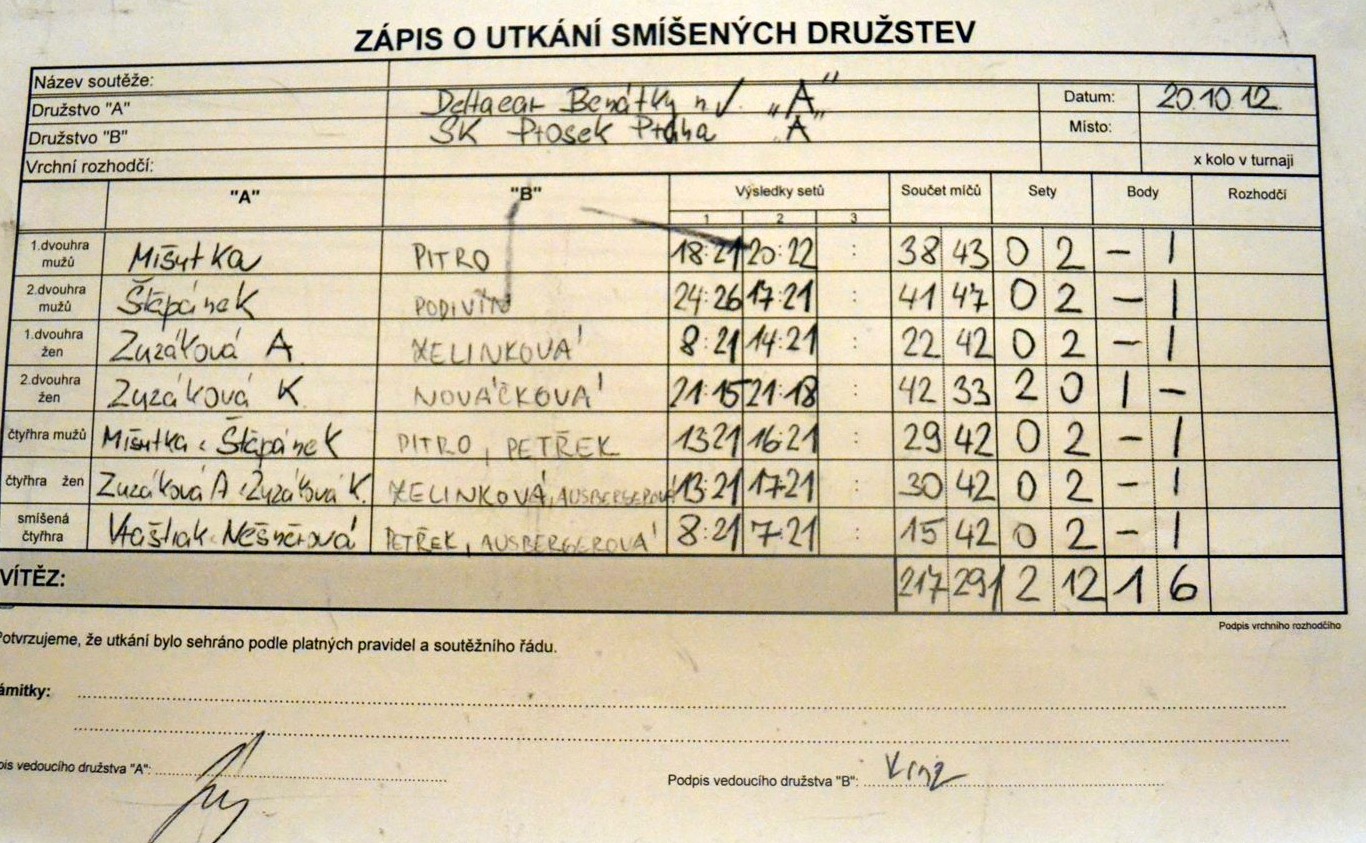 ZÁPIS O UTKÁNÍ SMÍŠENÝCH DRUŽSTEV
Název soutěže:
Družstvo "A" Deltacar Benátky n/J. „A" Datum: 20.10.12.
Družstvo "B" SK Prosek Praha „A Místo:
Vrchní rozhodčí: x kolo v turnaji
"A" "B" Výsledky setů Součet míčů Sety Body Rozhodčí
1 2 3
1.dvouhra mužů Mišutka PITRO 18:21 20:22 : 38 43 0 2 – 1
2.dvouhra mužů Štěpánek PODIVÍN 24:26 17:21 : 41 47 0 2 – 1
1.dvouhra žen Zuzáková A. XELINKOVÁ 8:21 14:21 : 22 42 0 2 – 1
2.dvouhra žen Zuzáková K. NOVÁČKOVÁ 21:15 21:18 : 42 33 2 0 1 –
čtyřhra mužů Mišutka - Štěpánek PITRO, PETŘEK 13:21 16:21 : 29 42 0 2 – 1
čtyřhra žen Zuzáková A - Zuzáková K. XELINKOVÁ, AUSBERGEROVÁ 13:21 17:21 : 30 42 0 2 – 1
smíšená čtyřhra PETŘEK, AUSBERGEROVÁ 8:21 7:21 : 15 42 0 2 – 1
VÍTĚZ: 217 291 2 12 1 6
Podpis vrchního rozhodčího
Potvrzujeme, že utkání bylo sehráno podle platných pravidel a soutěžního řádu.
ámitky:
pis vedoucího družstva "A":
Podpis vedoucího družstva "B":